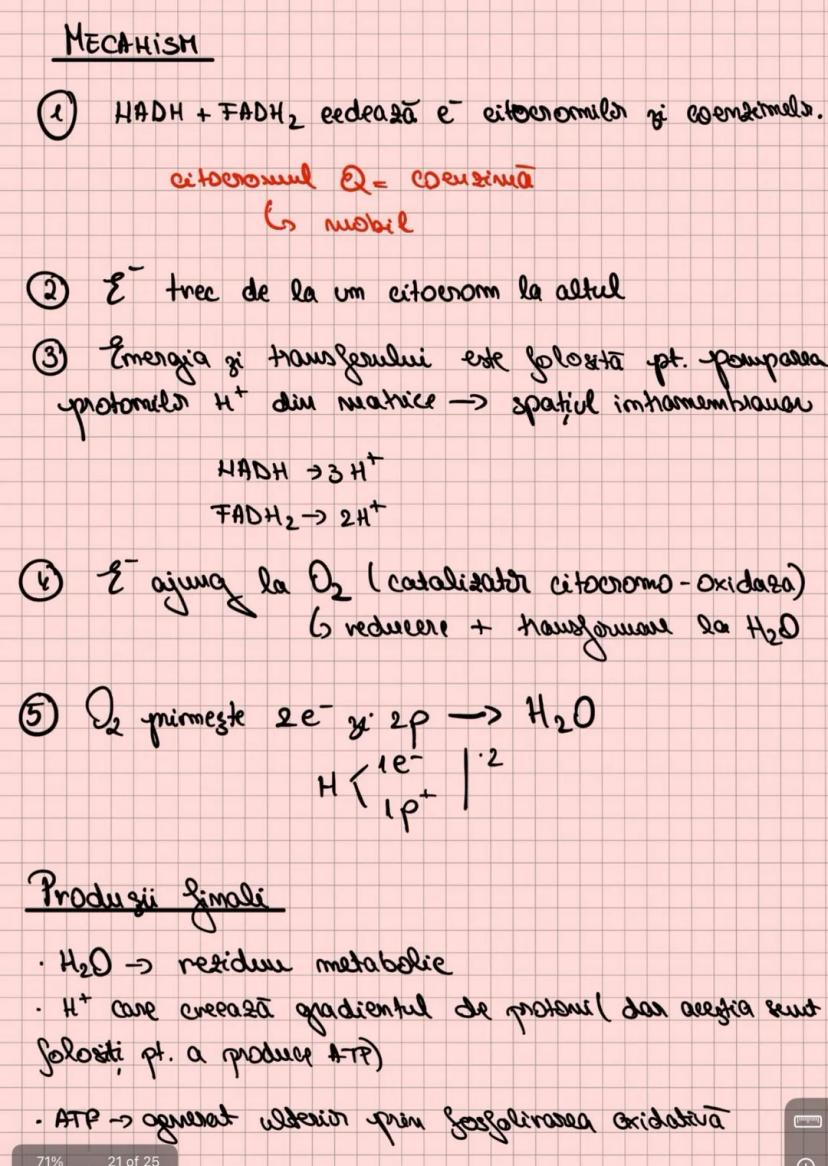 MECANISM
① NADH + FADH₂ cedează e⁻ citocromilor și coenzimelor.
citocromul Q = coenzimă
↳ mobil
② E⁻ trec de la un citocrom la altul
③ Energia și transferului este folosită pt. pomparea
protonilor H⁺ din matrice → spațiul intramembranar
NADH → 3H⁺
FADH₂ → 2H⁺
④ E⁻ ajung la O₂ (catalizator citocromo-oxidaza)
↳ reducere + transformare la H₂O
⑤ O₂ primește 2e⁻ și 2p → H₂O
H < 1e⁻ 1p⁺ | ·2
Produșii finali
· H₂O → reziduu metabolic
· H⁺ care creează gradientul de protoni (dar aceștia sunt
folosiți pt. a produce ATP)
· ATP → generat ulterior prin fosfolirarea oxidativă
71% 21 of 25